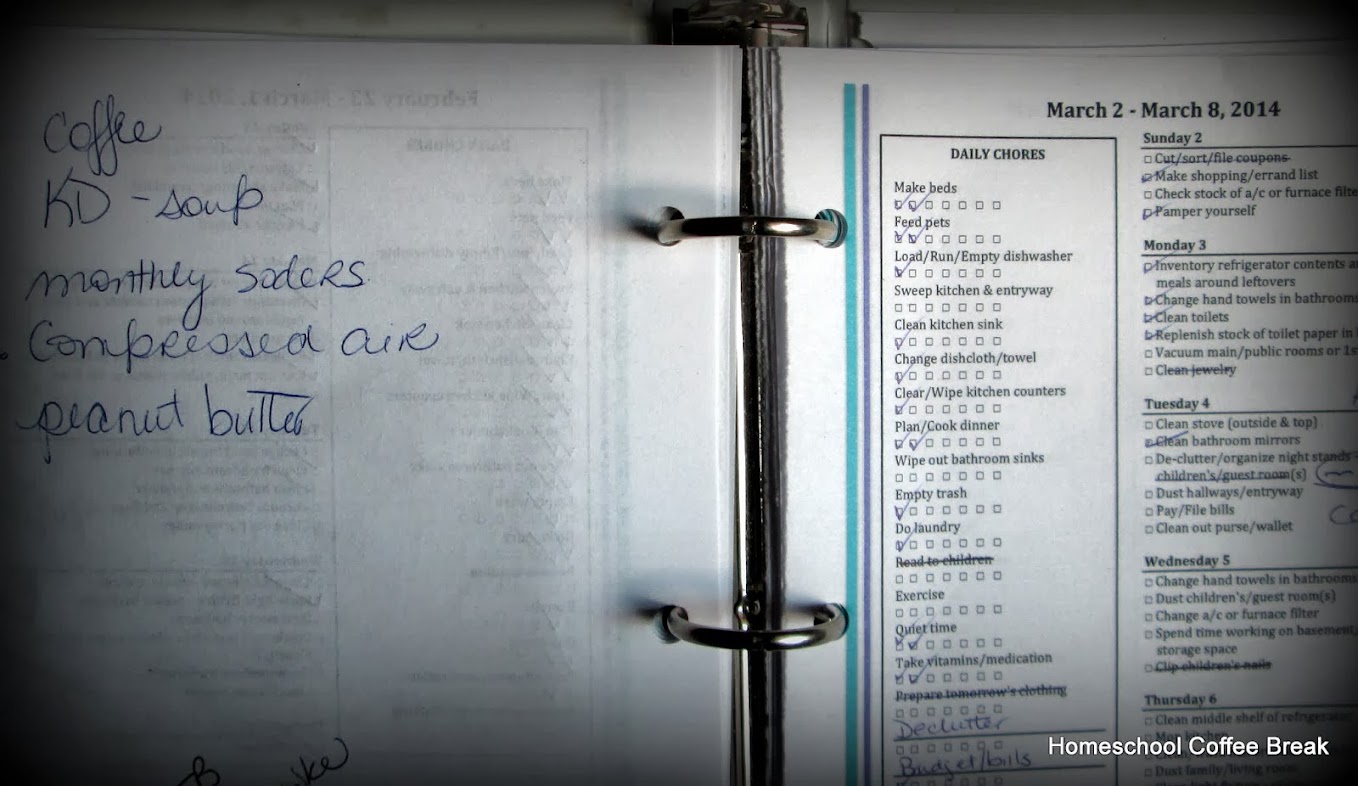 Coffee
KD - soup
monthly soders
Compressed air
peanut butter
March 2 - March 8, 2014
DAILY CHORES
Make beds
Feed pets
Load/Run/Empty dishwasher
Sweep kitchen & entryway
Clean kitchen sink
Change dishcloth/towel
Clear/Wipe kitchen counters
Plan/Cook dinner
Wipe out bathroom sinks
Empty trash
Do laundry
Read to children
Exercise
Quiet time
Take vitamins/medication
Prepare tomorrow's clothing
Declutter
Budget/bills
Sunday 2
Cut/sort/file coupons
Make shopping/errand list
Check stock of a/c or furnace filte
Pamper yourself
Monday 3
Inventory refrigerator contents a
meals around leftovers
Change hand towels in bathrooms
Clean toilets
Replenish stock of toilet paper in
Vacuum main/public rooms or 1s
Clean jewelry
Tuesday 4
Clean stove (outside & top)
Clean bathroom mirrors
De-clutter/organize night stands
children's/guest room(s)
Dust hallways/entryway
Pay/File bills
Clean out purse/wallet
Wednesday 5
Change hand towels in bathrooms
Dust children's/guest room(s)
Change a/c or furnace filter
Spend time working on basement,
storage space
Clip children's nails
Thursday 6
Clean middle shelf of refrigerator
Mop kitchen
Dust family/living room
Homeschool Coffee Break